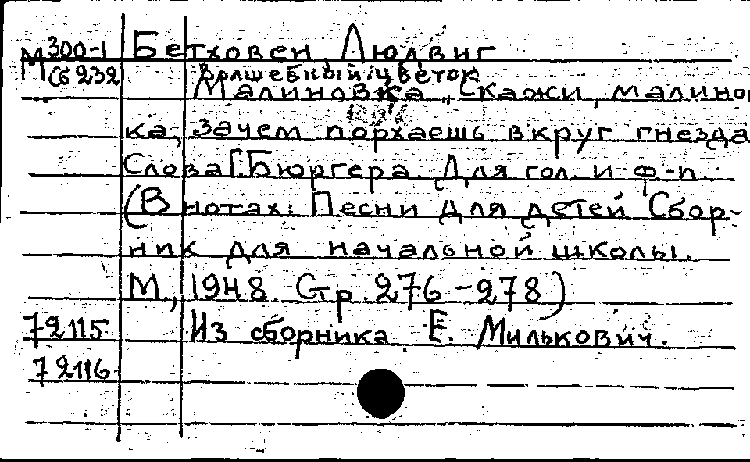 М 300-1 Бетховен Людвиг
Сб 232 Волшебный цветок
Малиновка „Скажи, малинов
ка, зачем порхаешь вкруг гнезда
Слова Г. Бюргера Для гол. и ф-п.
(В нотах: Песни для детей Сбор-
ник для начальной школы.
М., 1948. Стр. 276-278)
72115 Из сборника Е. Милькович.
72116